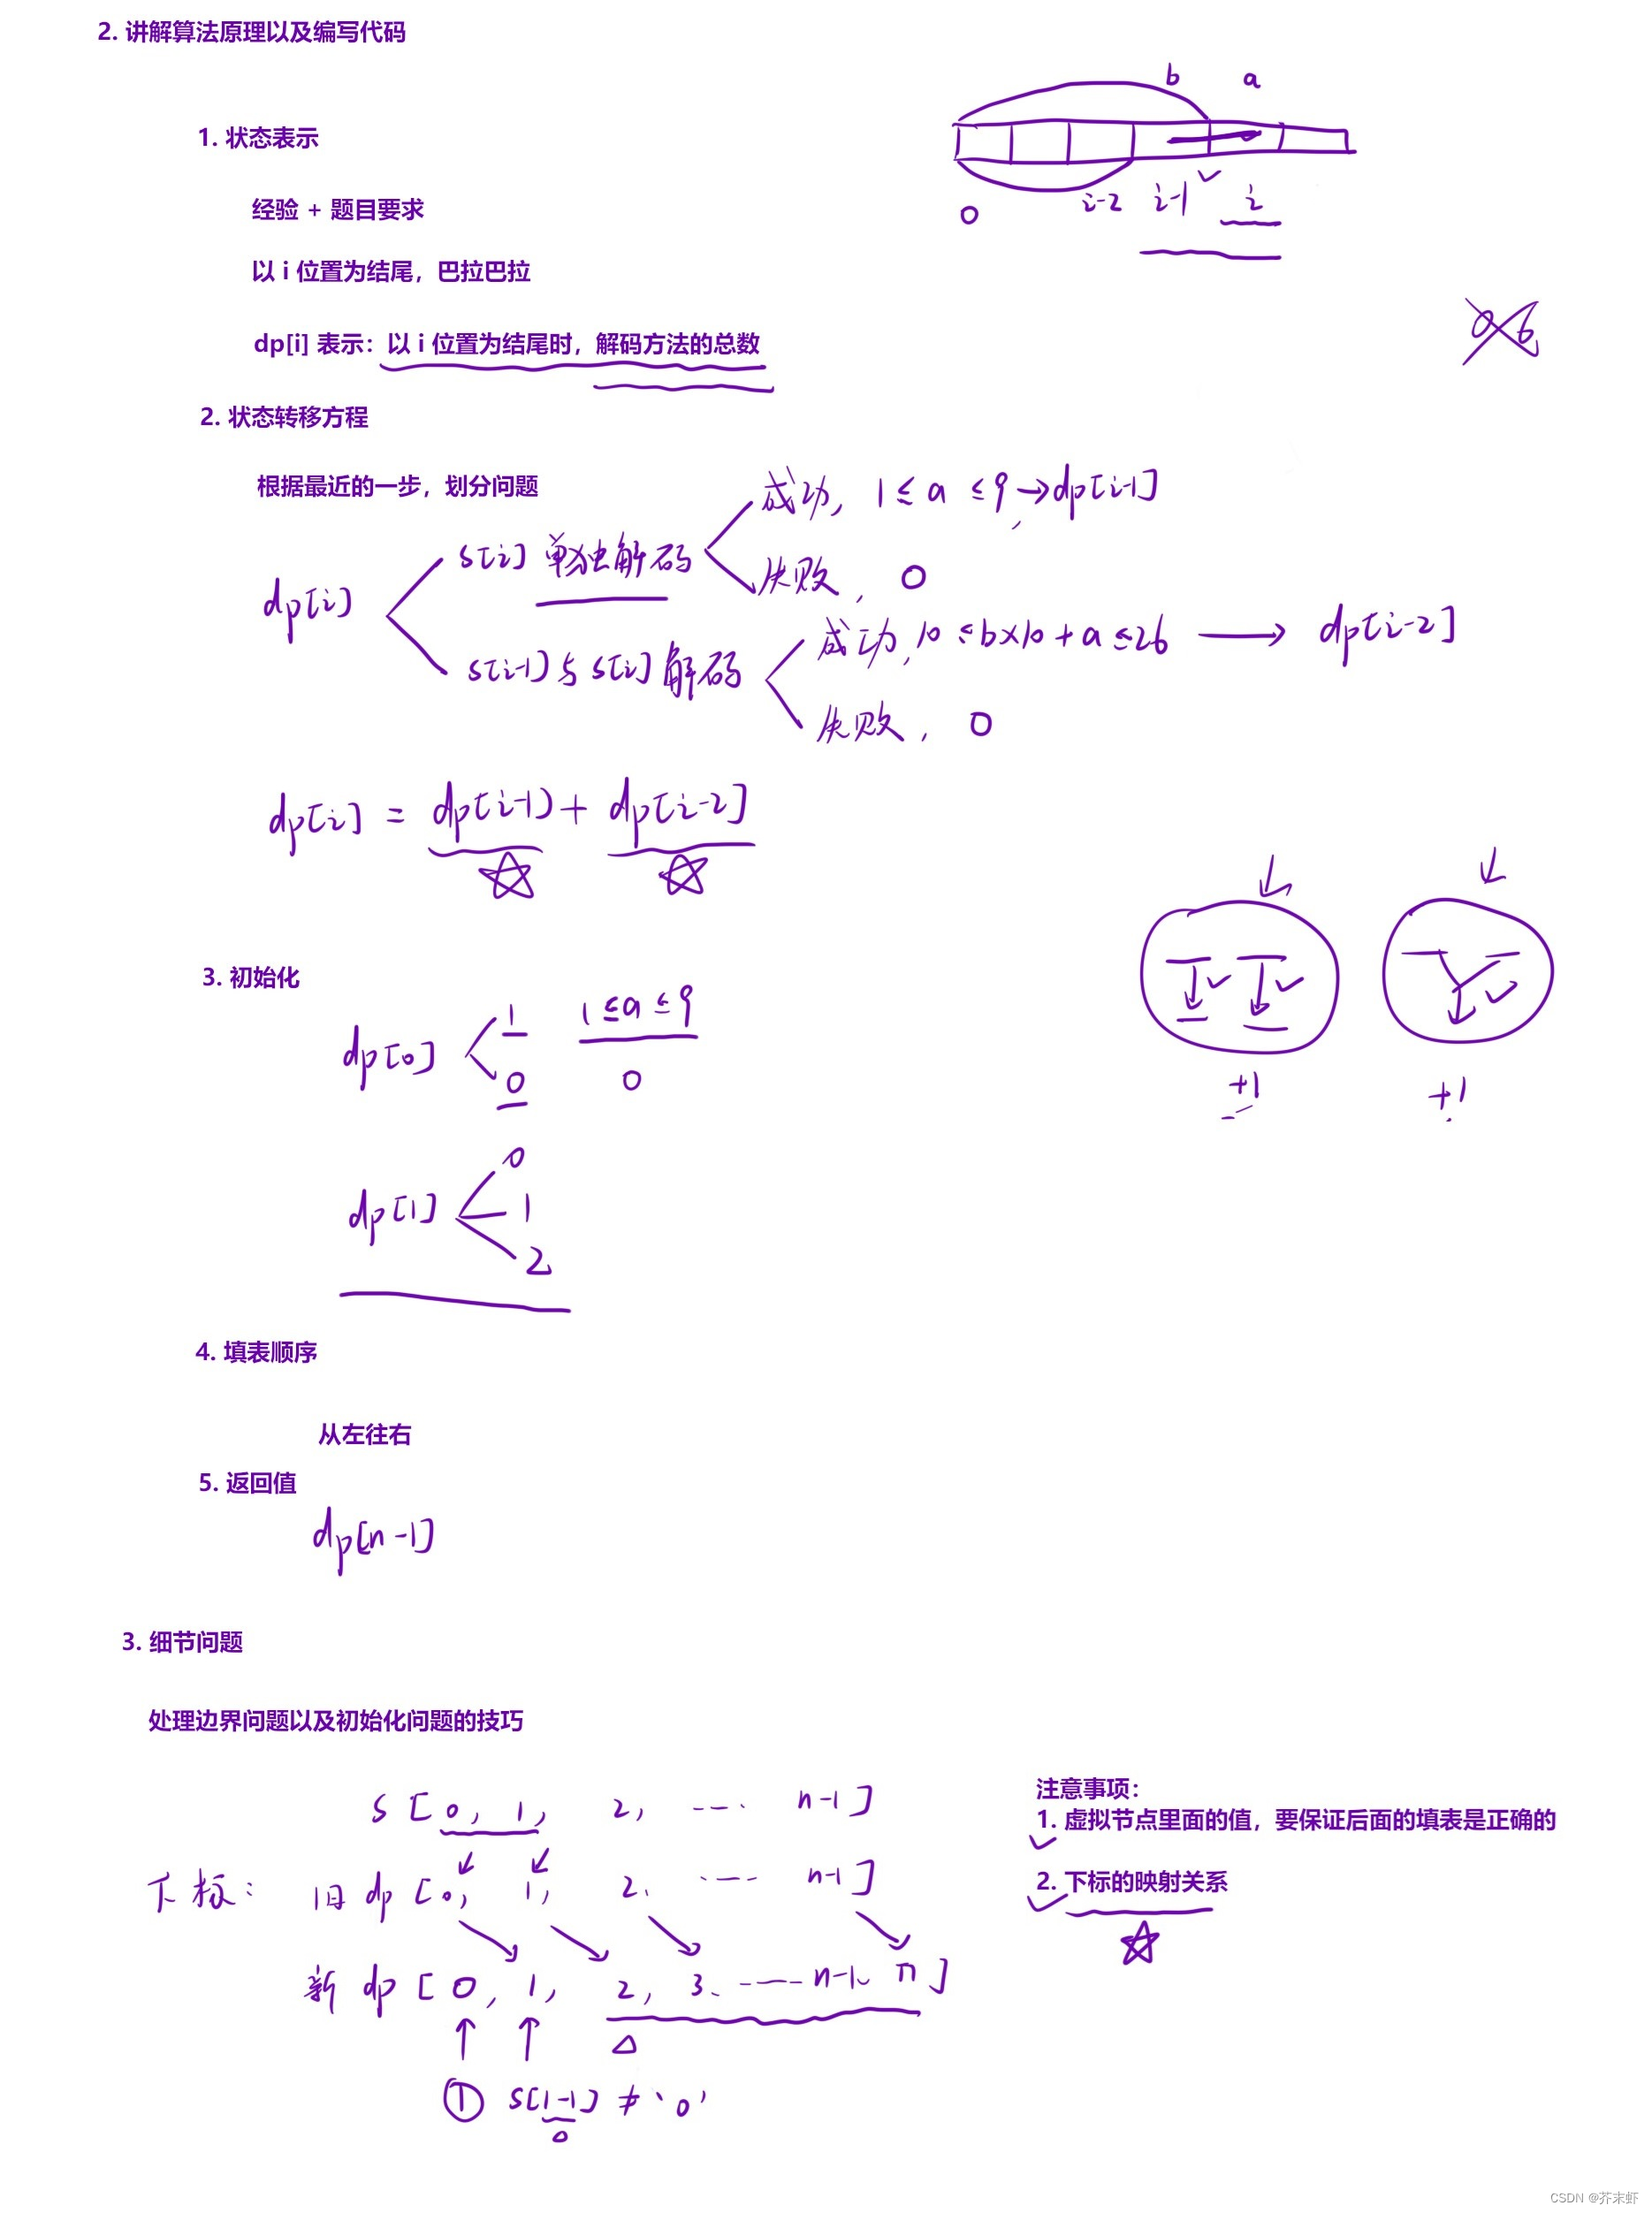 2. 讲解算法原理以及编写代码
b a
1. 状态表示
i-2 i-1 i
0
经验 + 题目要求
以 i 位置为结尾，巴拉巴拉
06
dp[i] 表示：以 i 位置为结尾时，解码方法的总数
2. 状态转移方程
根据最近的一步，划分问题
成功, 1 ≤ a ≤ 9, → dp[i-1]
s[i] 单独解码
失败, 0
dp[i]
成功, 10 ≤ b×10 + a ≤ 26 → dp[i-2]
s[i-1] 与 s[i] 解码
失败, 0
dp[i] = dp[i-1] + dp[i-2]
3. 初始化
1 1 ≤ a ≤ 9
dp[0]
0 0
+1 +1
0
dp[1] 1
2
4. 填表顺序
从左往右
5. 返回值
dp[n-1]
3. 细节问题
处理边界问题以及初始化问题的技巧
注意事项：
S [ 0, 1, 2, ---- n-1 ]
1. 虚拟节点里面的值，要保证后面的填表是正确的
下标： 旧 dp [ 0, 1, 2, ---- n-1 ]
2. 下标的映射关系
新 dp [ 0, 1, 2, 3, ---- n-1, n ]
① S[1-1] ≠ '0'
0
CSDN @芥末虾